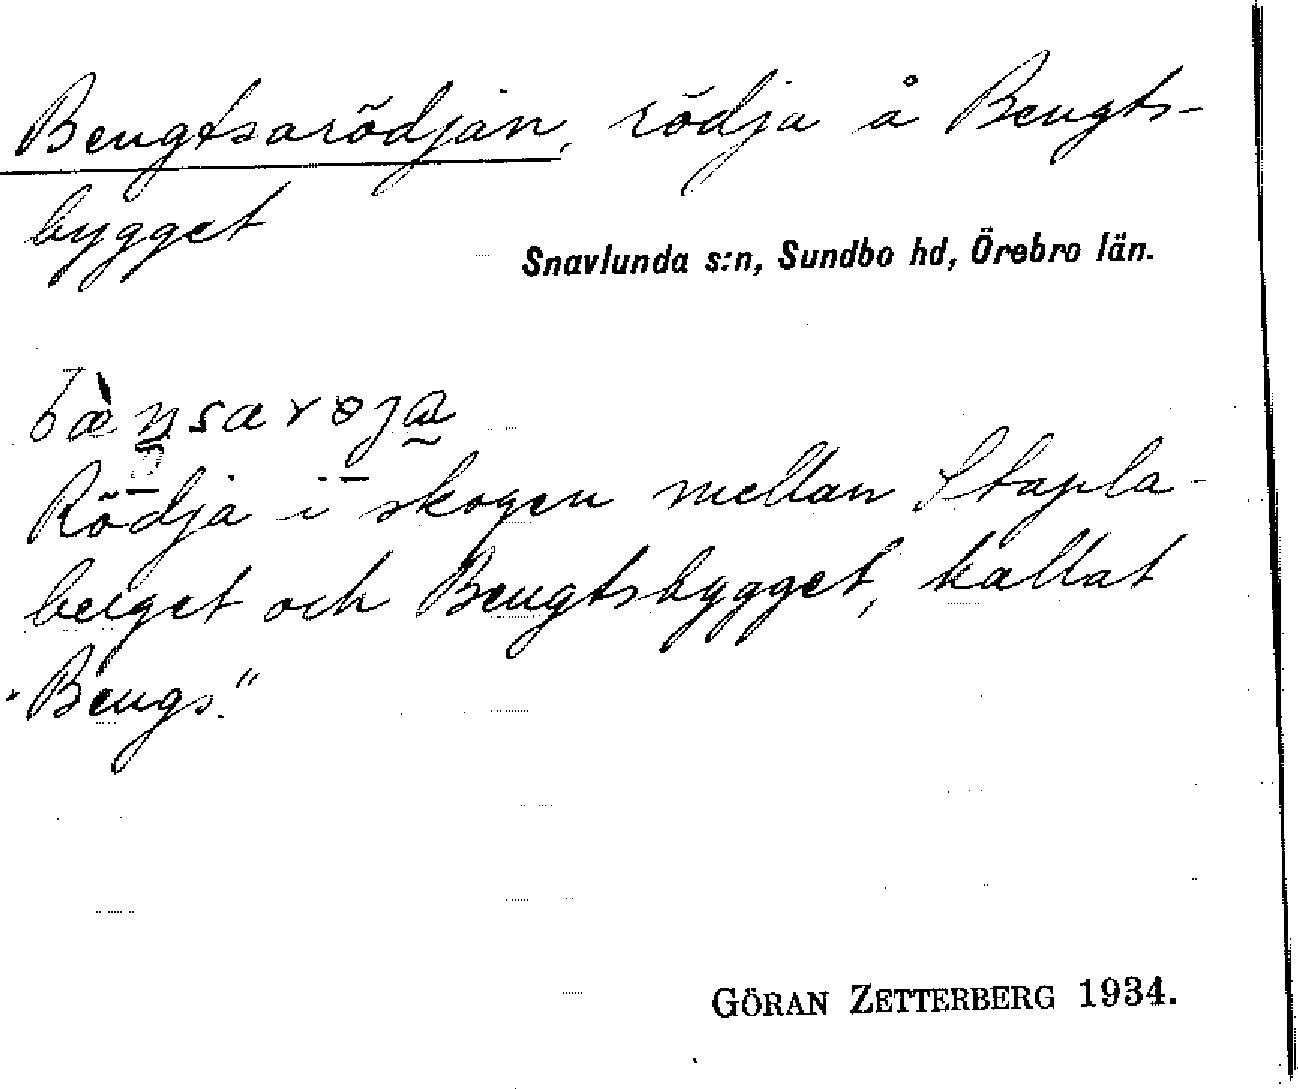 Bengtsarödjan, rödja å Bengts-
bygget
Snavlunda s:n, Sundbo hd, Örebro län.
Rödja i skogen mellan Stapla-
berget och Bengtsbygget, kallat
"Bengs."
GÖRAN ZETTERBERG 1934.